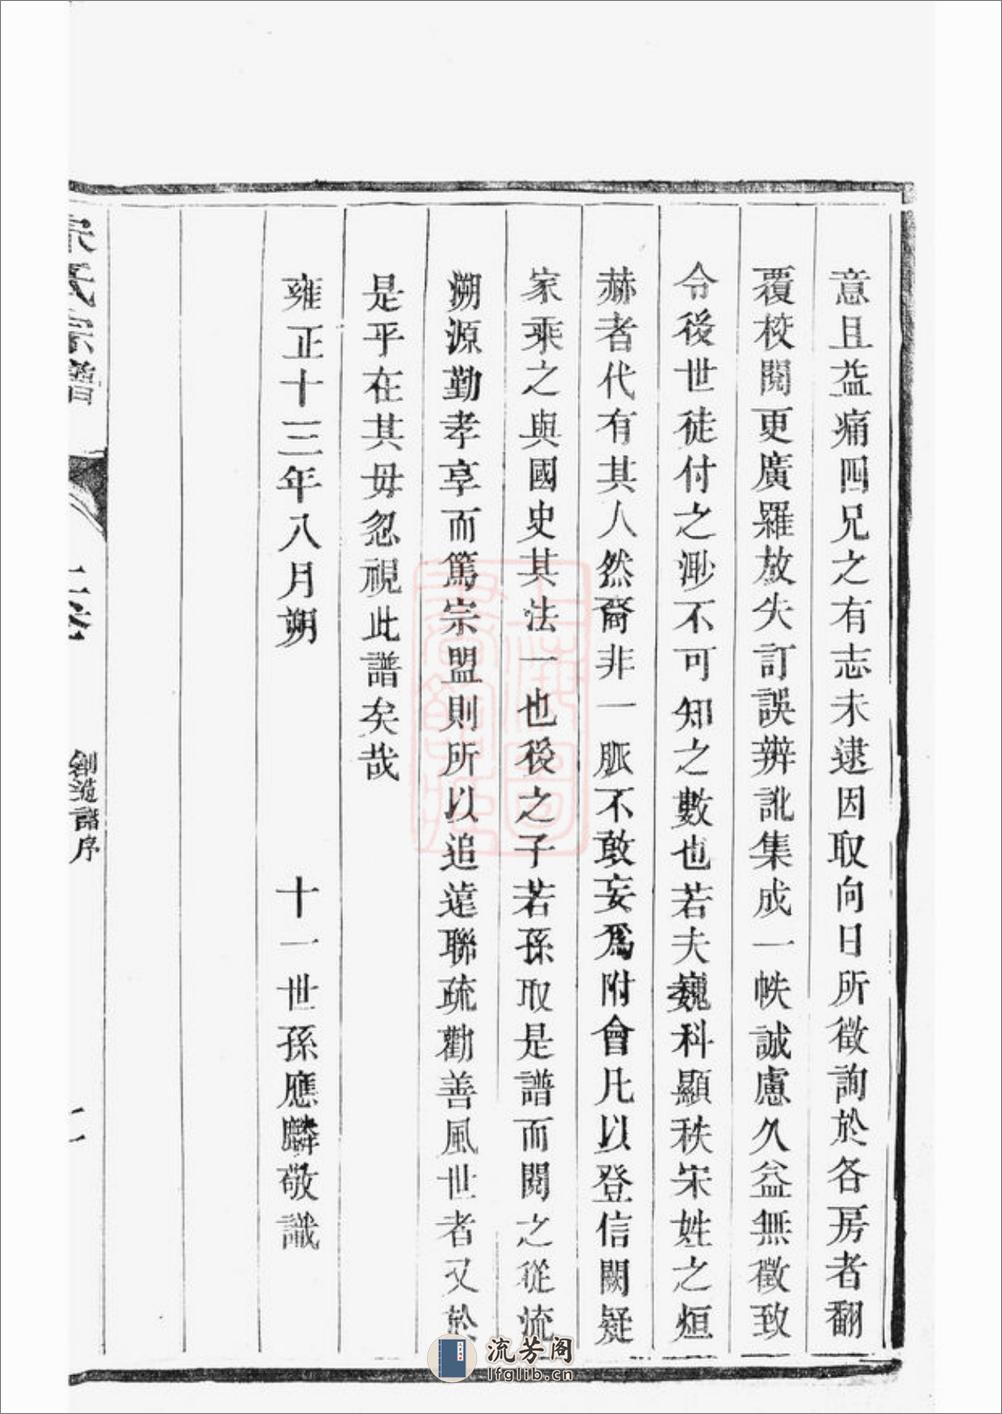 意且益痛四兄之有志未逮因取向日所徵詢於各房者翻
覆校閱更廣羅放失訂誤辨訛集成一帙誠慮久益無徵致
令後世徒付之渺不可知之數也若夫巍科顯秩宋姓之烜
赫者代有其人然裔非一脈不敢妄爲附會凡以登信闕疑
家乘之與國史其法一也後之子若孫取是譜而閱之從流
溯源勤孝享而篤宗盟則所以追遠聯疏勸善風世者又於
是乎在其毋忽視此譜矣哉
雍正十三年八月朔 十一世孫應麟敬識
宋氏宗譜
上卷
創造譜序
二
上海圖書館藏
流芳阁
lfglib.cn